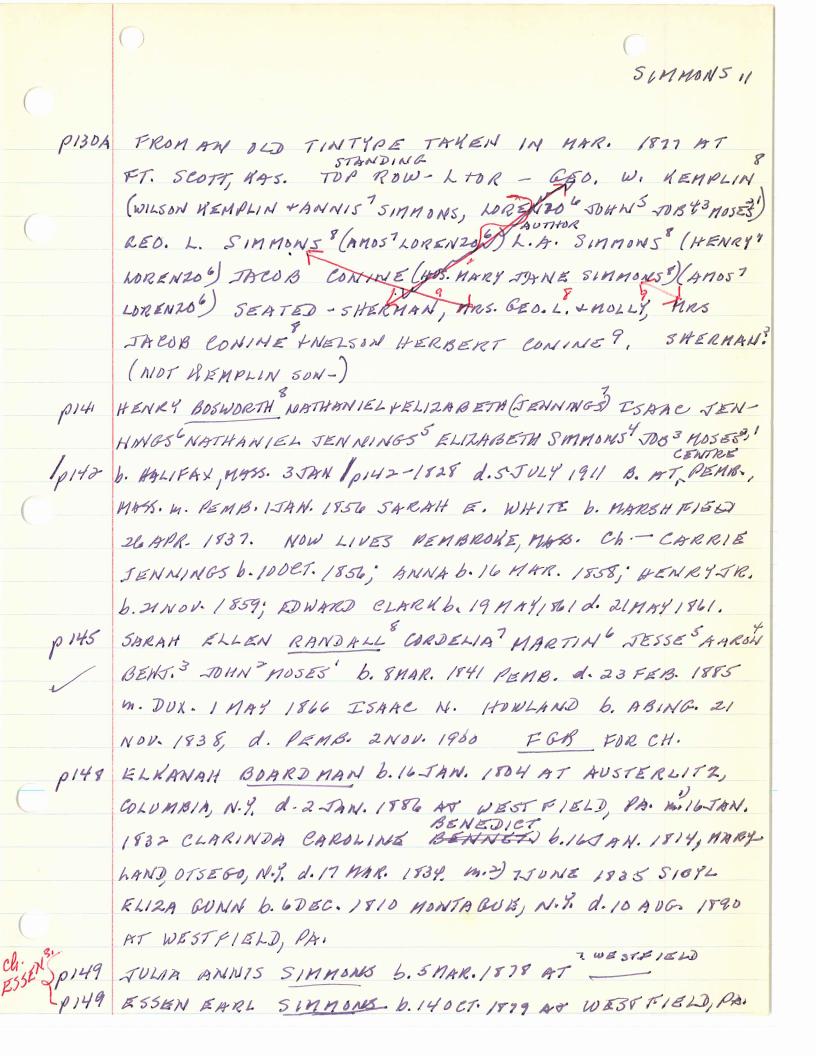 SIMMONS 11
p130A FROM AN OLD TINTYPE TAKEN IN MAR. 1877 AT
FT. SCOTT, KAS. STANDING TOP ROW - L TO R - GEO. W. KEMPLIN 8
(WILSON KEMPLIN + ANNIS 7 SIMMONS, LORENZO 6 JOHN 5 JOB 4 3 MOSES 2 1)
GEO. L. SIMMONS 8 (AMOS 7 LORENZO 6) AUTHOR L.A. SIMMONS 8 (HENRY 7
LORENZO 6) JACOB CONINE (HUS. MARY JANE SIMMONS 8) (AMOS 7
LORENZO 6) SEATED - SHERMAN, 9 MRS. GEO. L. 8 + MOLLY, 9 MRS
JACOB CONINE 8 + NELSON HERBERT CONINE 9. SHERMAN?
(NOT KEMPLIN SON-)
p141 HENRY BOSWORTH 8 NATHANIEL + ELIZABETH (JENNINGS 7) ISAAC JEN-
NINGS 6 NATHANIEL JENNINGS 5 ELIZABETH SIMMONS 4 JOB 3 MOSES 2, 1
/p142 b. HALIFAX, MASS. 3 JAN /p142-1828 d. 5 JULY 1911 B. AT CENTRE PEMB.,
MASS. m. PEMB. 1 JAN. 1856 SARAH E. WHITE b. MARSHFIELD
26 APR. 1837. NOW LIVES PEMBROKE, MASS. Ch. - CARRIE
JENNINGS b. 10 OCT. 1856; ANNA b. 16 MAR. 1858; HENRY JR.
b. 21 NOV. 1859; EDWARD CLARK b. 19 MAY 1861 d. 21 MAY 1861.
p145 SARAH ELLEN RANDALL 8 CORDELIA 7 MARTIN 6 JESSE 5 AARON 4
BENJ. 3 JOHN 2 MOSES 1 b. 8 MAR. 1841 PEMB. d. 23 FEB. 1885
m. DUX. 1 MAY 1866 ISAAC N. HOWLAND b. ABING. 21
NOV. 1838, d. PEMB. 2 NOV. 1900 FGR FOR CH.
p148 ELKANAH BOARDMAN b. 16 JAN. 1804 AT AUSTERLITZ,
COLUMBIA, N.Y. d. 2 JAN. 1886 AT WESTFIELD, PA. m. 1) 16 JAN.
1832 CLARINDA CAROLINE BENEDICT BENNETT b. 16 JAN. 1814, MARY-
LAND, OTSEGO, N.Y. d. 17 MAR. 1834. m. 2) 7 JUNE 1835 SIBYL
ELIZA GUNN b. 6 DEC. 1810 MONTAGUE, N.Y. d. 10 AUG. 1890
AT WESTFIELD, PA.
Ch. ESSEN 8.
p149 JULIA ANNIS SIMMONS b. 5 MAR. 1878 AT ? WESTFIELD
p149 ESSEN EARL SIMMONS b. 14 OCT. 1879 AT WESTFIELD, PA.